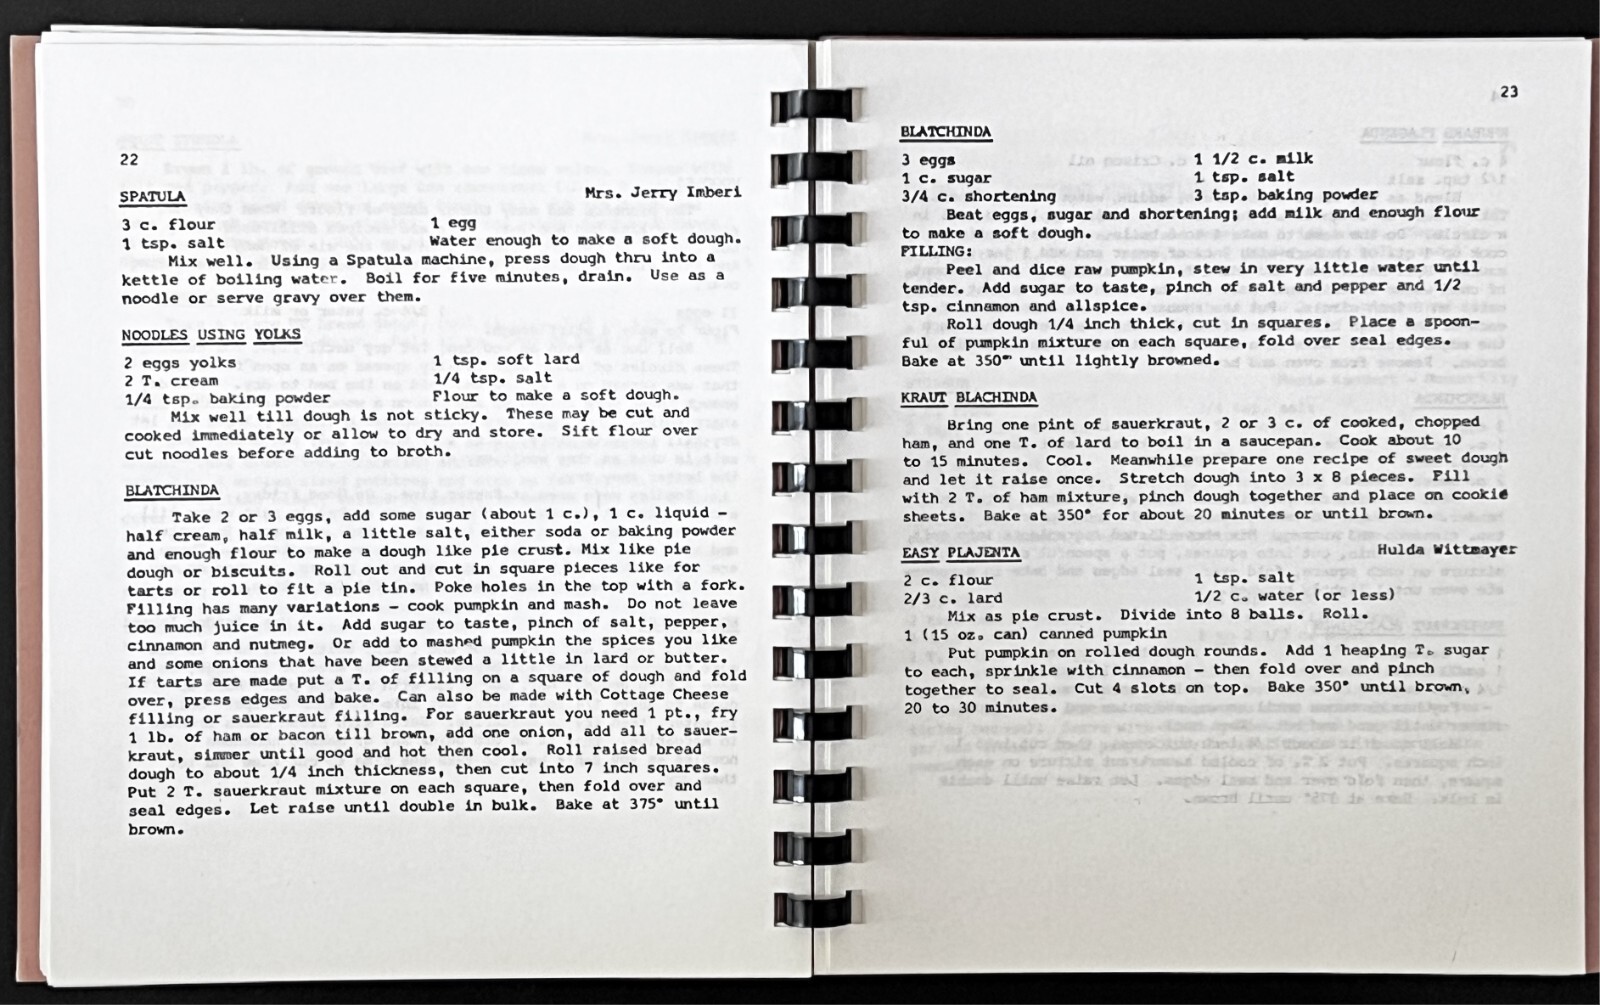 22
SPATULA Mrs. Jerry Imberi
3 c. flour 1 egg
1 tsp. salt Water enough to make a soft dough.
Mix well. Using a Spatula machine, press dough thru into a
kettle of boiling water. Boil for five minutes, drain. Use as a
noodle or serve gravy over them.
NOODLES USING YOLKS
2 eggs yolks 1 tsp. soft lard
2 T. cream 1/4 tsp. salt
1/4 tsp. baking powder Flour to make a soft dough.
Mix well till dough is not sticky. These may be cut and
cooked immediately or allow to dry and store. Sift flour over
cut noodles before adding to broth.
BLATCHINDA
Take 2 or 3 eggs, add some sugar (about 1 c.), 1 c. liquid -
half cream, half milk, a little salt, either soda or baking powder
and enough flour to make a dough like pie crust. Mix like pie
dough or biscuits. Roll out and cut in square pieces like for
tarts or roll to fit a pie tin. Poke holes in the top with a fork.
Filling has many variations - cook pumpkin and mash. Do not leave
too much juice in it. Add sugar to taste, pinch of salt, pepper,
cinnamon and nutmeg. Or add to mashed pumpkin the spices you like
and some onions that have been stewed a little in lard or butter.
If tarts are made put a T. of filling on a square of dough and fold
over, press edges and bake. Can also be made with Cottage Cheese
filling or sauerkraut filling. For sauerkraut you need 1 pt., fry
1 lb. of ham or bacon till brown, add one onion, add all to sauer-
kraut, simmer until good and hot then cool. Roll raised bread
dough to about 1/4 inch thickness, then cut into 7 inch squares.
Put 2 T. sauerkraut mixture on each square, then fold over and
seal edges. Let raise until double in bulk. Bake at 375° until
brown.
23
BLATCHINDA
3 eggs 1 1/2 c. milk
1 c. sugar 1 tsp. salt
3/4 c. shortening 3 tsp. baking powder
Beat eggs, sugar and shortening; add milk and enough flour
to make a soft dough.
FILLING:
Peel and dice raw pumpkin, stew in very little water until
tender. Add sugar to taste, pinch of salt and pepper and 1/2
tsp. cinnamon and allspice.
Roll dough 1/4 inch thick, cut in squares. Place a spoon-
ful of pumpkin mixture on each square, fold over seal edges.
Bake at 350° until lightly browned.
KRAUT BLACHINDA
Bring one pint of sauerkraut, 2 or 3 c. of cooked, chopped
ham, and one T. of lard to boil in a saucepan. Cook about 10
to 15 minutes. Cool. Meanwhile prepare one recipe of sweet dough
and let it raise once. Stretch dough into 3 x 8 pieces. Fill
with 2 T. of ham mixture, pinch dough together and place on cookie
sheets. Bake at 350° for about 20 minutes or until brown.
EASY PLAJENTA Hulda Wittmayer
2 c. flour 1 tsp. salt
2/3 c. lard 1/2 c. water (or less)
Mix as pie crust. Divide into 8 balls. Roll.
1 (15 oz. can) canned pumpkin
Put pumpkin on rolled dough rounds. Add 1 heaping T. sugar
to each, sprinkle with cinnamon - then fold over and pinch
together to seal. Cut 4 slots on top. Bake 350° until brown,
20 to 30 minutes.